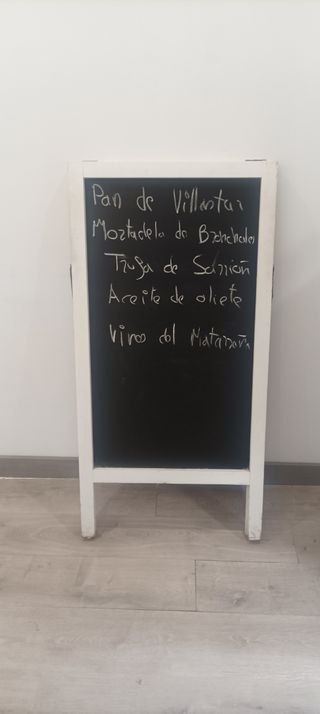 Pan de Villastar
Mortadela de Bronchales
Trufa de Sarrión
Aceite de oliete
Vinos del Matarraña